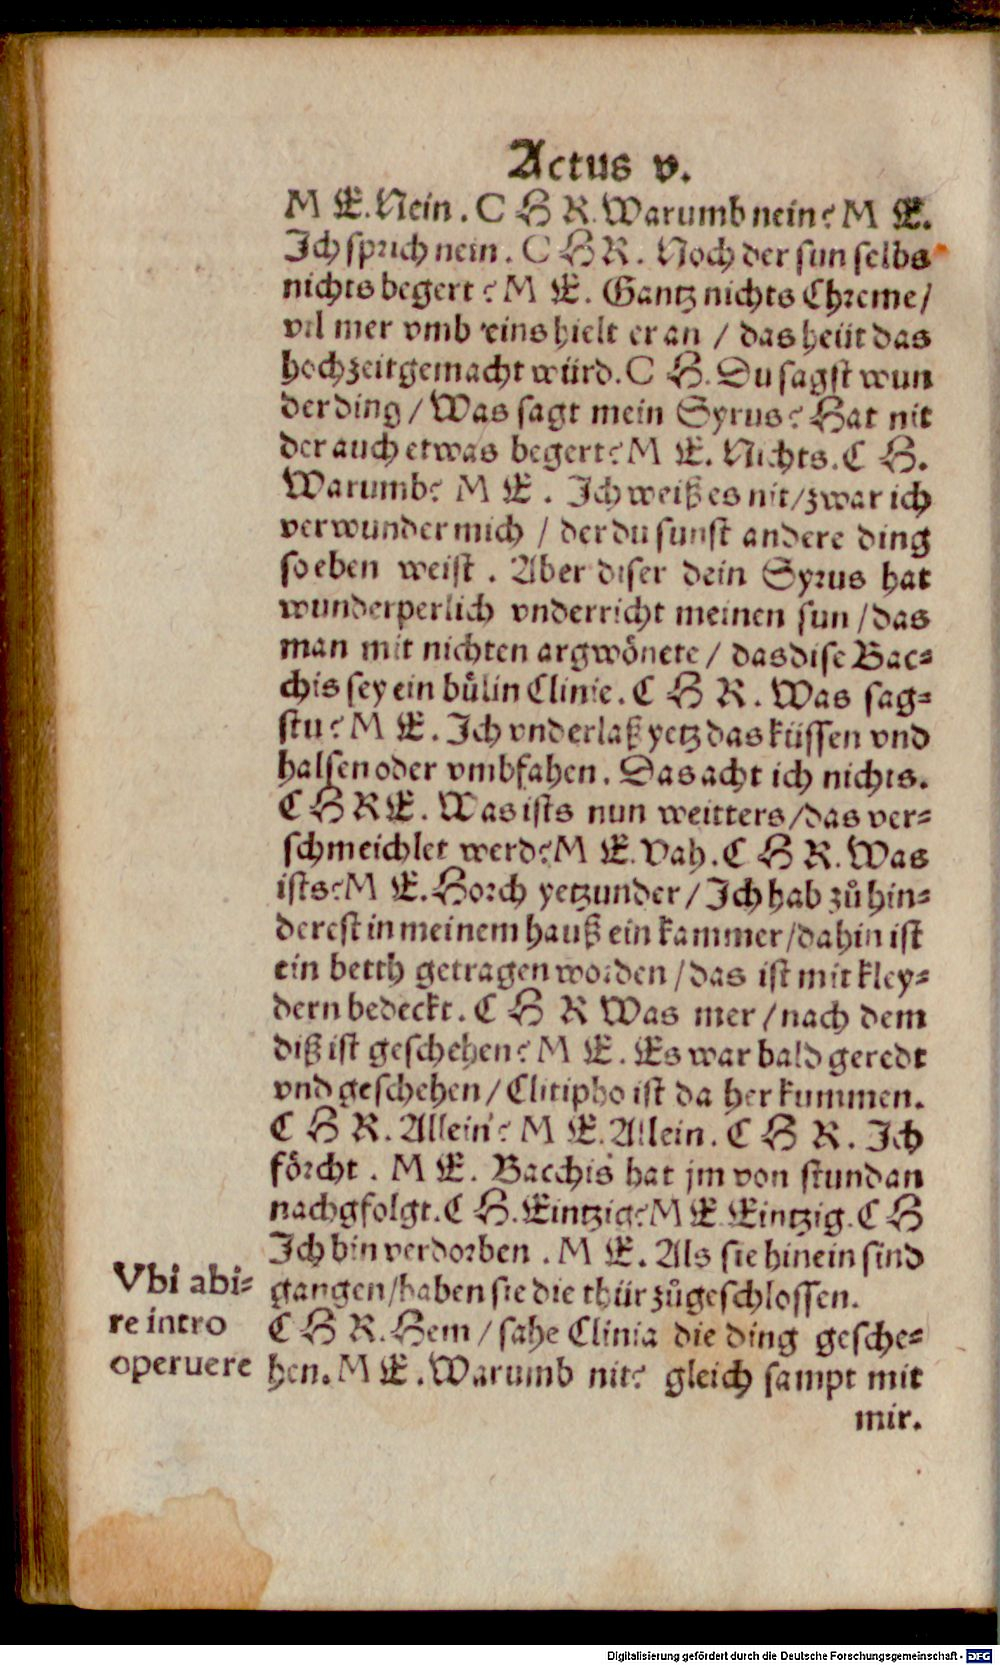 Actus v.
M E. Nein. C H R. Warumb nein? M E.
Ich sprich nein. C H R. Noch der sun selbs
nichts begert? M E. Gantz nichts Chreme/
vil mer vmb eins hielt er an / das heüt das
hochzeit gemacht würd. C H. Du sagst wun
der ding / Was sagt mein Syrus? Hat nit
der auch etwas begert? M E. Nichts. C H.
Warumb? M E. Ich weiß es nit/zwar ich
verwunder mich / der du sunst andere ding
so eben weist. Aber diser dein Syrus hat
wunderperlich vnderricht meinen sun / das
man mit nichten argwönete / das dise Bac⸗
chis sey ein bůlin Clinie. C H R. Was sag⸗
stu? M E. Ich vnderlaß yetz das küssen vnd
halsen oder vmbfahen. Das acht ich nichts.
C H R E. Was ists nun weitters/das ver⸗
schmeichlet werd? M E. Vah. C H R. Was
ists? M E. Horch yetzunder / Ich hab zů hin⸗
derest in meinem hauß ein kammer/dahin ist
ein betth getragen worden / das ist mit kley⸗
dern bedeckt. C H R Was mer / nach dem
diß ist geschehen? M E. Es war bald geredt
vnd geschehen / Clitipho ist da her kummen.
C H R. Allein? M E. Allein. C H R. Ich
förcht. M E. Bacchis hat jm von stund an
nachgfolgt. C H. Eintzig? M E Eintzig. C H
Ich bin verdorben. M E. Als sie hinein sind
gangen/haben sie die thür zůgeschlossen.
C H R. Hem / sahe Clinia die ding gesche⸗
hen. M E. Warumb nit? gleich sampt mit
mir.
Vbi abi⸗
re intro
operuere
Digitalisierung gefördert durch die Deutsche Forschungsgemeinschaft - DFG